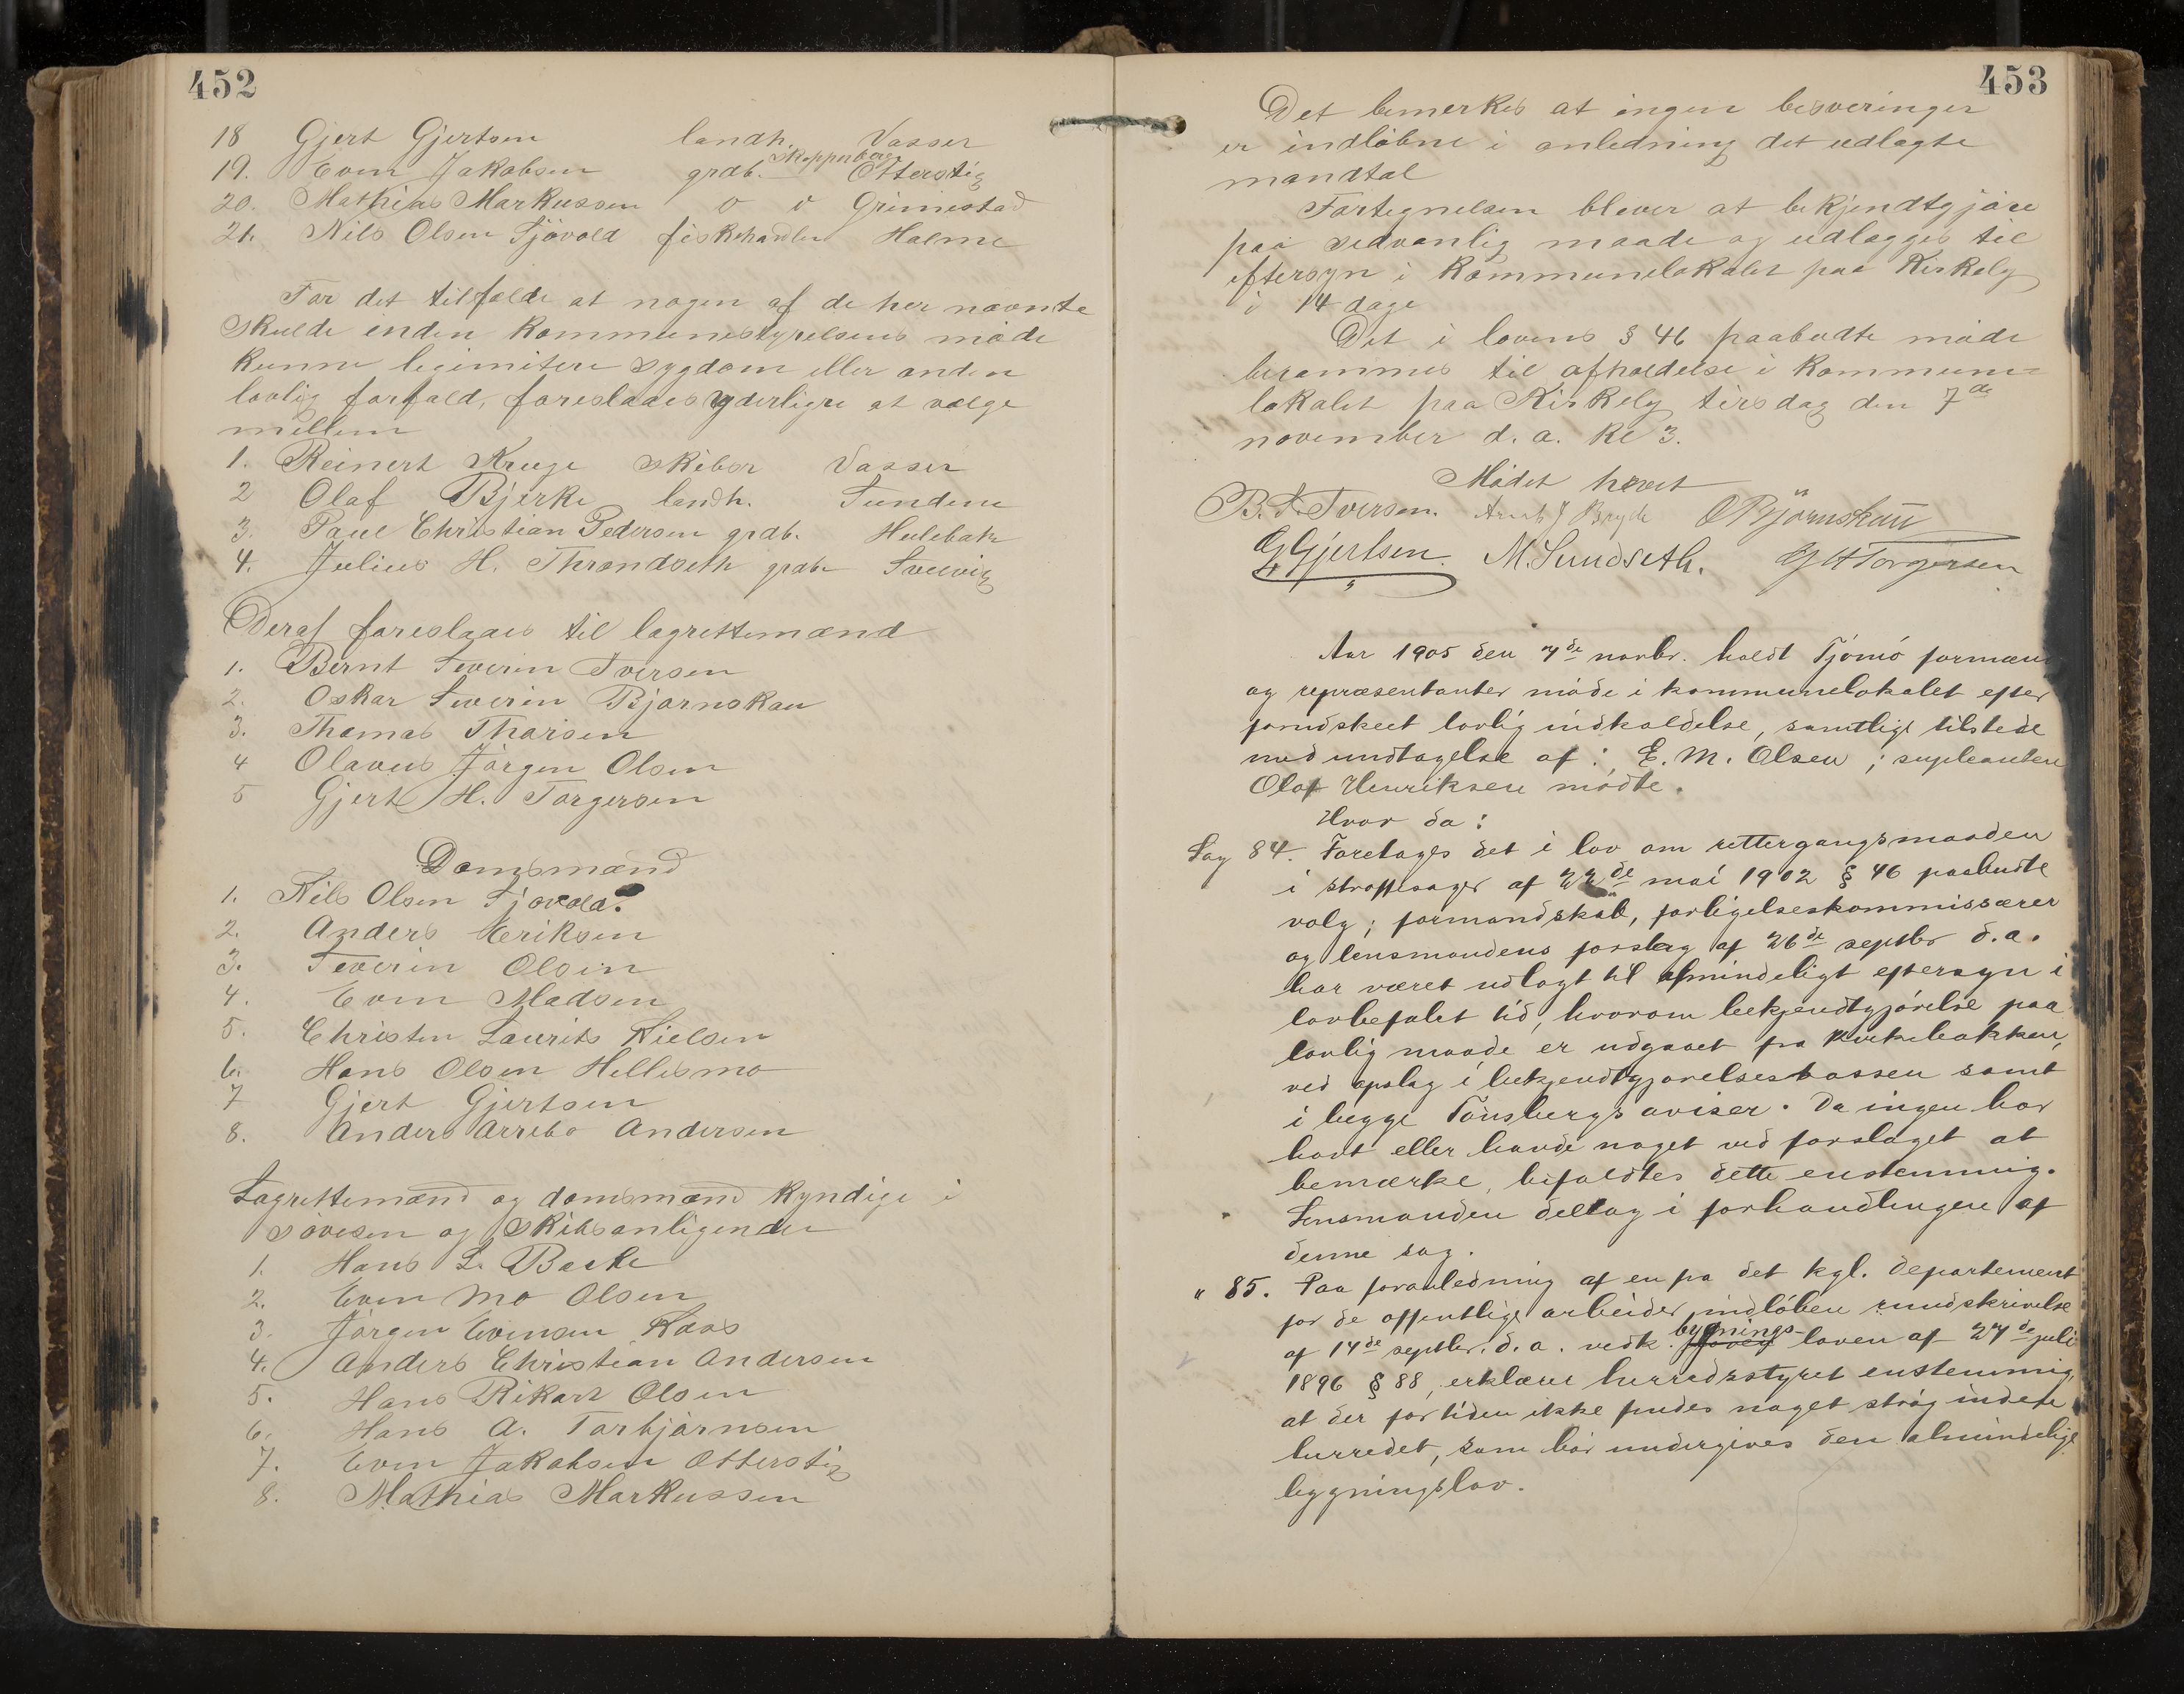 452
18 Gjert Gjertsen landh. Vasser
19. Even Jakobsen grdb. Skipperberg Otterstig
20. Mathias Markussen o o Grimestad
21. Nils Olsen Sjövold fiskehandler Holme
For det tilfælde at nogen af de her nævnte
skulde inden kommunestyrelsens møde
kunne legimitere sygdom eller anden
lovlig forfald, foreslaaes yderligre at vælge
mellem
1. Reinert Kruge skibsr Vasser
2 Olaf Bjerke landh. Sundene
3. Paul Christian Pedersen grdb. Hulebak
4. Julius H. Throndseth grdb Svelvig
Deraf foreslaaes til lagrettemænd
1. Bernt Severin Iversen
2. Oskar Severin Bjørnskau
3. Thomas Thorsen
4 Olavus Jørgen Olsen
5 Gjert H. Torgersen
Domsmænd
1. Nils Olsen Sjøvold.
2. Anders Eriksen
3. Severin Olsen
4. Even Madsen
5. Christen Laurits Nielsen
6. Hans Olsen Hellesmo
7 Gjert Gjertsen
8. Anders Arrebo Andersen
Lagrettemænd og domsmænd kyndige i
søvesen og skibsanligender
1. Hans L. Bache
2. Even Mo Olsen
3. Jørgen Evensen Kaas
4. Anders Christian Andersen
5. Hans Rikart Olsen
6. Hans A. Torbjørnsen
7. Even Jakobsen Otterstig
8. Mathias Markussen
453
Det bemerkes at ingen besveringer
er indløbne i anledning det udlagte
mandtal
Fortegnelsen blever at bekjendtgjøre
paa sedvanlig maade og udlægges til
eftersyn i kommunelokalet paa Kirkelg
i 14 dage
Det i lovens § 46 paabudte møde
berammes til afholdelse i kommune=
lokalet paa Kirkelg tirsdag den 7de
november d. a. kl 3.
Mødet hævet
B. S. Iversen. Arnt J Bryde O Bjørnskau
G Gjertsen. M. Sundseth. G H Torgersen
Aar 1905 den 7de novbr. holdt Tjömö formænd
og repræsentanter möde i kommunelokalet efter
forudskeet lovlig indkaldelse, samtlige tilstede
med undtagelse af: E. M. Olsen; supleanten
Olaf Henriksen mödte.
Hvor da:
Sag 84. Foretages det i lov om rettergangsmaaden
i straffesager af 22de mai 1902 § 46 paabudte
valg; formandskab, forligelseskommissærer
og lensmandens forslag af 26de septbr d.a.
har været udlagt til almindeligt eftersyn i
lovbefalet tid, hvorom bekjendtgjörelse paa
lovlig maade er udgaaet fra kirkebakken,
ved opslag i bekjendtgjørelseskassen samt
i begge Tönsbergs aviser. Da ingen har
havt eller havde noget ved forslaget at
bemærke, bifaldtes dette enstemmig.
Lensmanden deltog i forhandlingen af
denne sag.
" 85. Paa foranledning af en fra det kgl. departement
for de offentlige arbeider indlöben rundskrivelse
af 14de septbr. d. a. vedk. bygnings- loven af 27de juli
1896 § 88, erklærer herredsstyret enstemmig,
at der for tiden ikke findes noget strög inden
herredet, som bör undergives den almindelige
bygningslov.